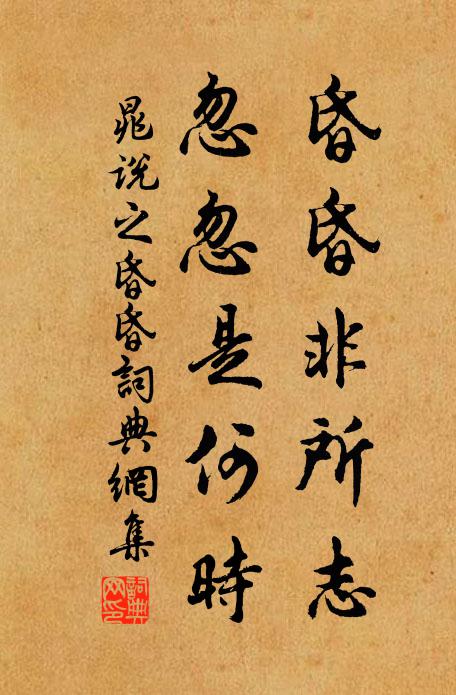 昏昏非所志
忽忽是何時
晁說之昏昏詞典網集
詞典網印